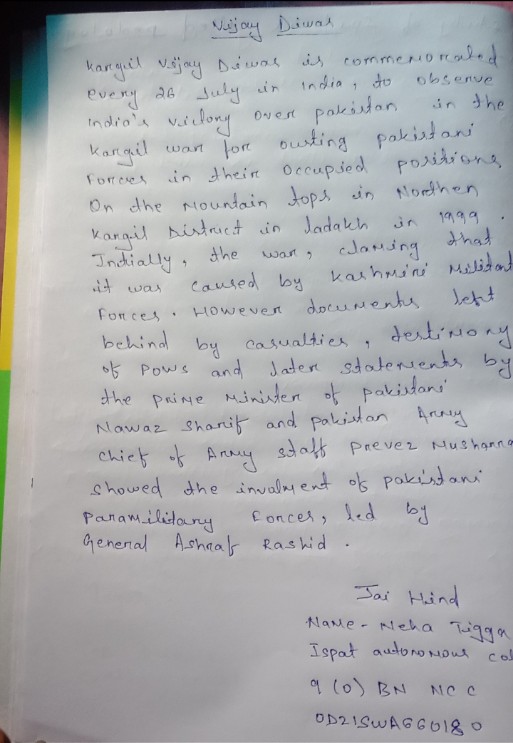 Vijay Diwas
Kargil Vijay Diwas is commemorated
every 26 July in India, to observe
India's victory over pakistan in the
Kargil war for ousting pakistani
Forces in their Occupied positions
On the Mountain tops in Northen
Kargil District in ladakh in 1999.
Intially, the war, claming that
it was caused by Kashmiri Militant
Forces. However documents left
behind by casualties, testimony
of POWs and later statements by
the Prime Minister of pakistani
Nawaz sharif and pakistan Army
chief of Army staff Prevez Musharra
showed the invalment of pakistani
Paramilitary Forces, led by
General Ashraf Rashid.
Jai Hind
Name - Neha Tigga
Ispat autonomous col
9 (O) BN NCC
OD21SWA660180